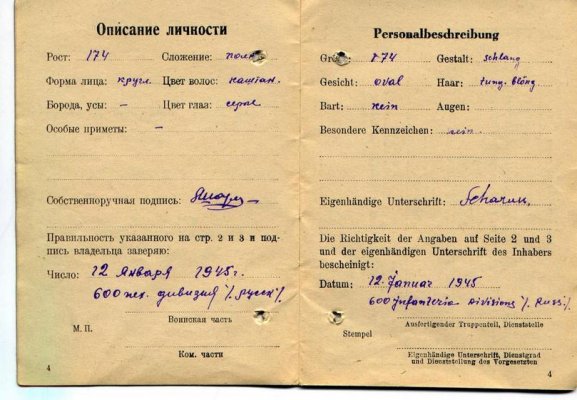 Описание личности
Рост: 174 Сложение: полн
Форма лица: кругл. Цвет волос: каштан.
Борода, усы: – Цвет глаз: серые
Особые приметы: –
Собственноручная подпись:
Правильность указанного на стр. 2 и 3 и под-
пись владельца заверяю:
Число: 12 Января 1945г.
600 пех. дивизия /. Русск /.
Воинская часть
М. П.
Ком. части
4
Personalbeschreibung
Größe: 174 Gestalt: schlang
Gesicht: oval Haar:
Bart: nein Augen:
Besondere Kennzeichen: nein
Eigenhändige Unterschrift:
Die Richtigkeit der Angaben auf Seite 2 und 3
und der eigenhändigen Unterschrift des Inhabers
bescheinigt:
Datum: 12. Januar 1945
600 Infanteria Divisions /. Russ. /.
Ausfertigender Truppenteil, Dienststelle
Stempel
Eigenhändige Unterschrift, Dienstgrad
und Dienststellung des Vorgesetzten
4